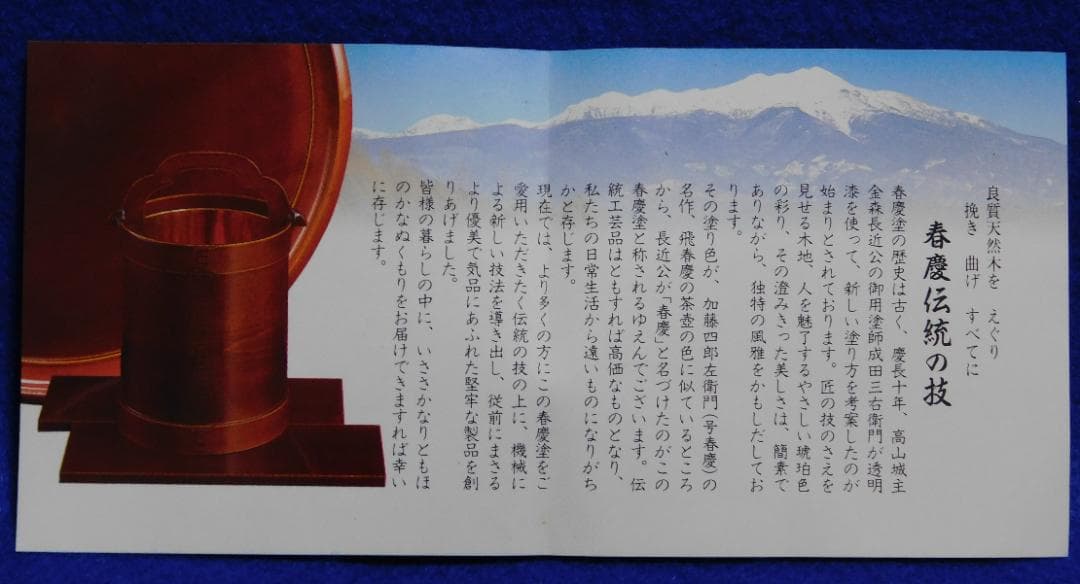 良質天然木を　えぐり
挽き　曲げ　すべてに
春慶伝統の技
春慶塗の歴史は古く、慶長十年、高山城主
金森長近公の御用塗師成田三右衛門が透明
漆を使って、新しい塗り方を考案したのが
始まりとされております。匠の技のさえを
見せる木地、人を魅了するやさしい琥珀色
の彩り、その澄みきった美しさは、簡素で
ありながら、独特の風雅をかもしだしてお
ります。
その塗り色が、加藤四郎左衛門（号春慶）の
名作、飛春慶の茶壺の色に似ているところ
から、長近公が「春慶」と名づけたのがこの
春慶塗と称されるゆえんでございます。伝
統工芸品はともすれば高価なものとなり、
私たちの日常生活から遠いものになりがち
かと存じます。
現在では、より多くの方にこの春慶塗をご
愛用いただきたく伝統の技の上に、機械に
よる新しい技法を導き出し、従前にまさる
より優美で気品にあふれた堅牢な製品を創
りあげました。
皆様の暮らしの中に、いささかなりともほ
のかなぬくもりをお届けできますれば幸い
に存じます。